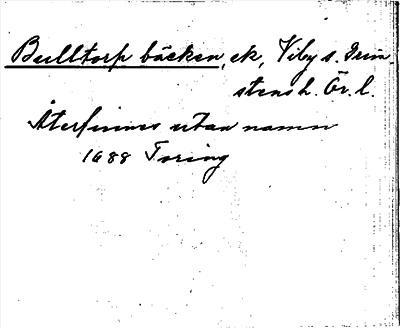 Bulltorp bäcken, ek, Viby s. Grim-
stens h. Ör. l.
Återfinnes utan namn
1688 Toring